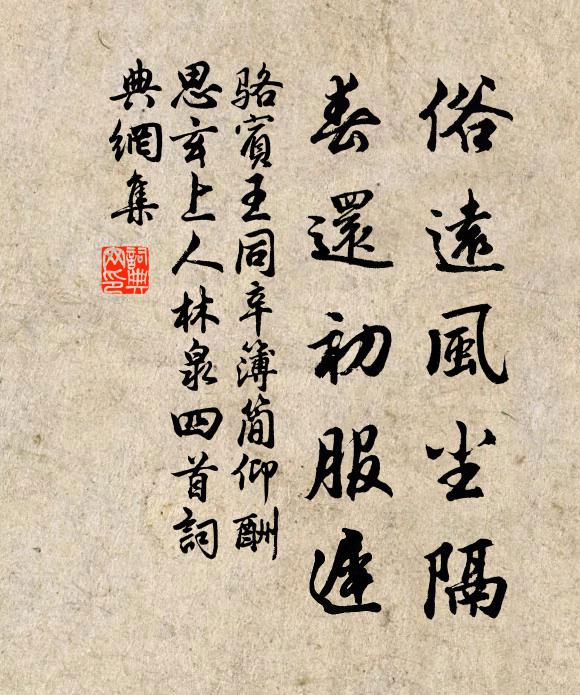 俗遠風尘隔
春還初服遲
骆賓王同辛簿簡仰酬
思玄上人林泉四首詞
典網集
詞典网印